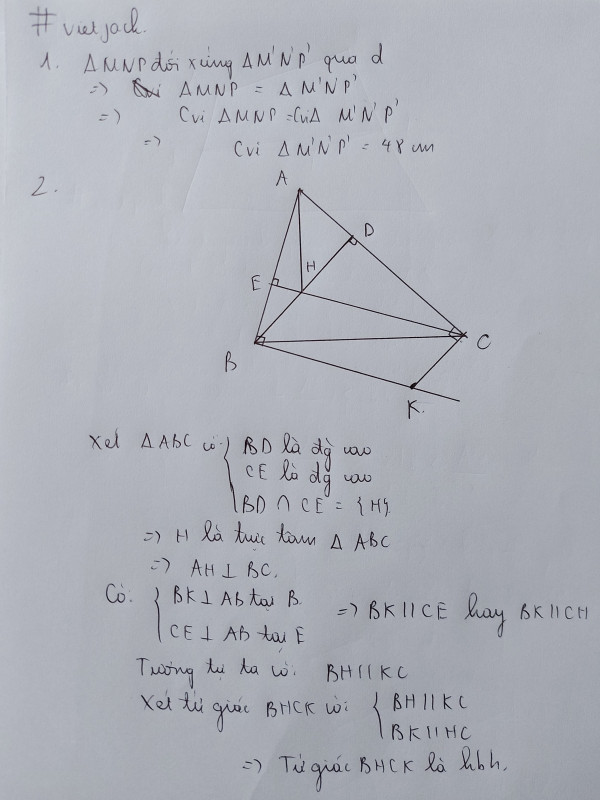 #vietjack.
1. ΔMNP đối xứng ΔM'N'P' qua d
=> ΔMNP = ΔM'N'P'
=> Cvi ΔMNP = CviΔ M'N'P'
=> Cvi ΔM'N'P' = 48 cm
2.
A
D
H
E
C
B
K.
Xét ΔABC có: { BD là đg cao
CE là đg cao
BD ∩ CE = {H}.
=> H là trực tâm Δ ABC
=> AH ⊥ BC.
Có: { BK ⊥ AB tại B. => BK // CE hay BK // CH
CE ⊥ AB tại E
Tương tự ta có: BH // KC
Xét tứ giác BHCK có: { BH // KC
BK // HC
=> Tứ giác BHCK là hbh.